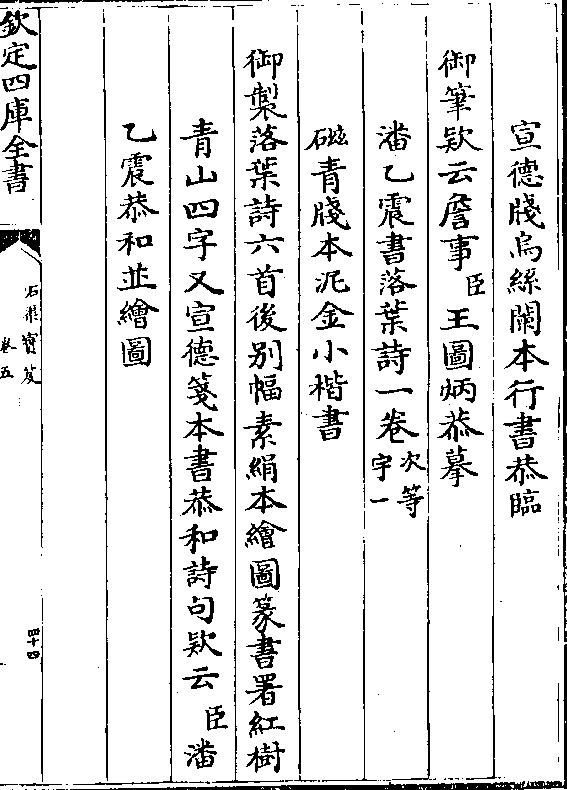 宣德牋烏絲闌本行書恭臨
御筆欵云詹事臣王圖炳恭摹
潘乙震書落葉詩一卷次等宇一
磁青牋本泥金小楷書
御製落葉詩六首後别幅素絹本繪圖篆書署紅樹
青山四字又宣德箋本書恭和詩句欵云臣潘
乙震恭和並繪圖
欽定四庫全書
石渠寶笈
卷五
四十四